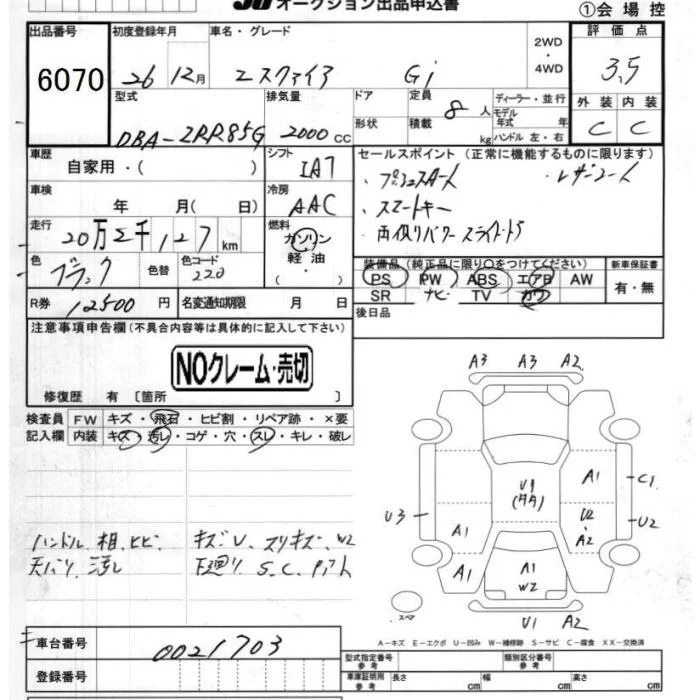 オークション出品申込書
①会場控
出品番号 初度登録年月 車名・グレード 2WD ・ 4WD 評価点
6070 26 12月 エスクァイア Gi 3.5
型式 排気量 ドア 定員 8人 ディーラー・並行 外装 内装
DBA-ZRR85G 2000cc 形状 積載 kg モデル年式 年 ハンドル 左・右 C C
車歴 自家用・( ) シフト IA7 セールスポイント (正常に機能するものに限ります)
・プッシュスタート ・レザーシート
車検 年 月( 日) 冷房 AAC ・スマートキー
走行 20万2千127km 燃料 ガソリン 軽油 ・ ・両側パワースライドドア
色 ブラック 色替 色コード 220 装備品(純正品に限り○をつけてください) 新車保証書
PS PW ABS エアB AW 有・無
SR ナビ TV カワ
R券 12500円 名変通知期限 月 日 後日品
注意事項申告欄(不具合内容等は具体的に記入して下さい)
NOクレーム・売切
修復歴 有 〔箇所 〕
検査員 FW キズ・飛石・ヒビ割・リペア跡・×要
記入欄 内装 キズ・汚レ・コゲ・穴・スレ・キレ・破レ
A3 A3 A2
U1 A1 C1
U3 U2 U2
A1 A2
A1 A1
W2
スペア U1 A2
ハンドル 相、ヒビ キズ、U、スリキズ、W2
天バリ 汚レ 下廻り S、C、
A-キズ E-エクボ U-凹み W-補修跡 S-サビ C-腐食 XX-交換済
車台番号 0021703
登録番号
型式指定番号 参考 類別区分番号 参考
車庫証明用 参考 長さ cm 幅 cm 高さ cm